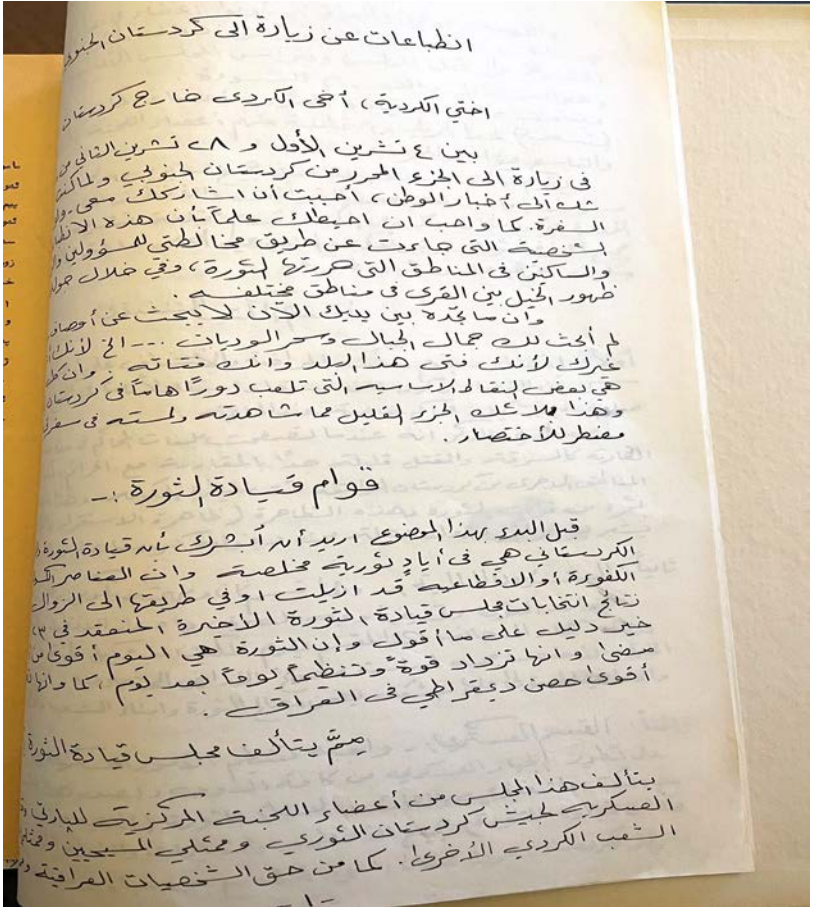 انطباعات عن زيارة الى كردستان الجنوبي
اختي الكردية، أخي الكردي خارج كردستان
بين ٤ تشرين الأول و ٢٨ تشرين الثاني من
في زيارة الى الجزء المحرر من كردستان الجنوبي ولما كنت
شك الى أخبار الوطن، أحببت أن اشاركك معي
السفرة. كما واحب ان احيطك علماً بأن هذه
الشخصية التي جاءت عن طريق مخالطتي للمسؤولين
والساكنين في المناطق التي حررتها الثورة، وفي خلال
ظهور الخيل بين القرى في مناطق مختلفه.
وان ما تجده بين يديك الآن لا يبحث عن أوصاف
لم أبحث لك جمال الجبال وسحر الوديان --- الخ لأنك
غيرك لأنك فتى هذا البلد وانك فتاته. وان
هي بعض النقاط الاساسيه التي تلعب دوراً هاماً في كردستان
وهذا بلا شك الجزء القليل مما شاهدته ولمسته في
مضطر للأختصار.
قوام قيادة الثورة :ـ
قبل البدء بهذا الموضوع اريد أن أبشرك بأن قيادة الثورة
الكردستاني هي في أيادٍ ثورية مخلصة وان العناصر
الكفوءة أو الاقطاعيه قد ازيلت او في طريقها الى الزوال
نتائج انتخابات مجلس قيادة الثورة الأخيرة المنعقد في ٢٣
خير دليل على ما أقول وإن الثورة هي اليوم أقوى من
مضى وانها تزداد قوة وتنظيماً يوماً بعد يوم، كما وانها
أقوى حصن ديمقراطي في العراق.
مِمَّ يتألف مجلس قيادة الثورة
يتألف هذا المجلس من أعضاء اللجنة المركزية للبارتي
العسكريه لجيش كردستان الثوري وممثلي المسيحيين
الشعب الكردي الأخرى. كما من حق الشخصيات العراقية
-١-